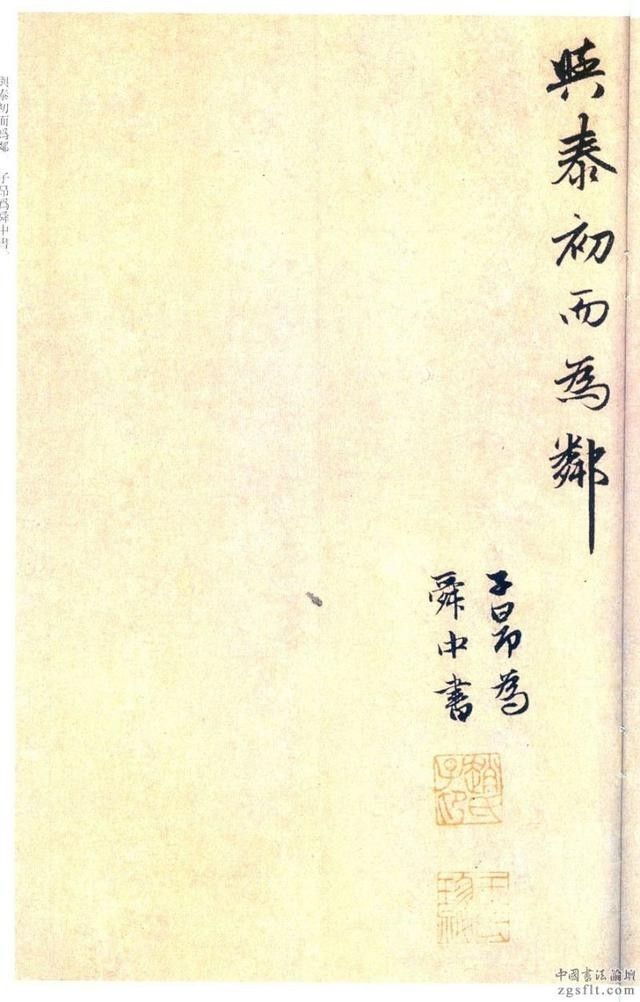 與泰初而為鄰
子昂為
舜中書
趙氏子昂
與泰初而爲鄰 子昂爲舜中書。
中國書法論壇
zgsflt.com